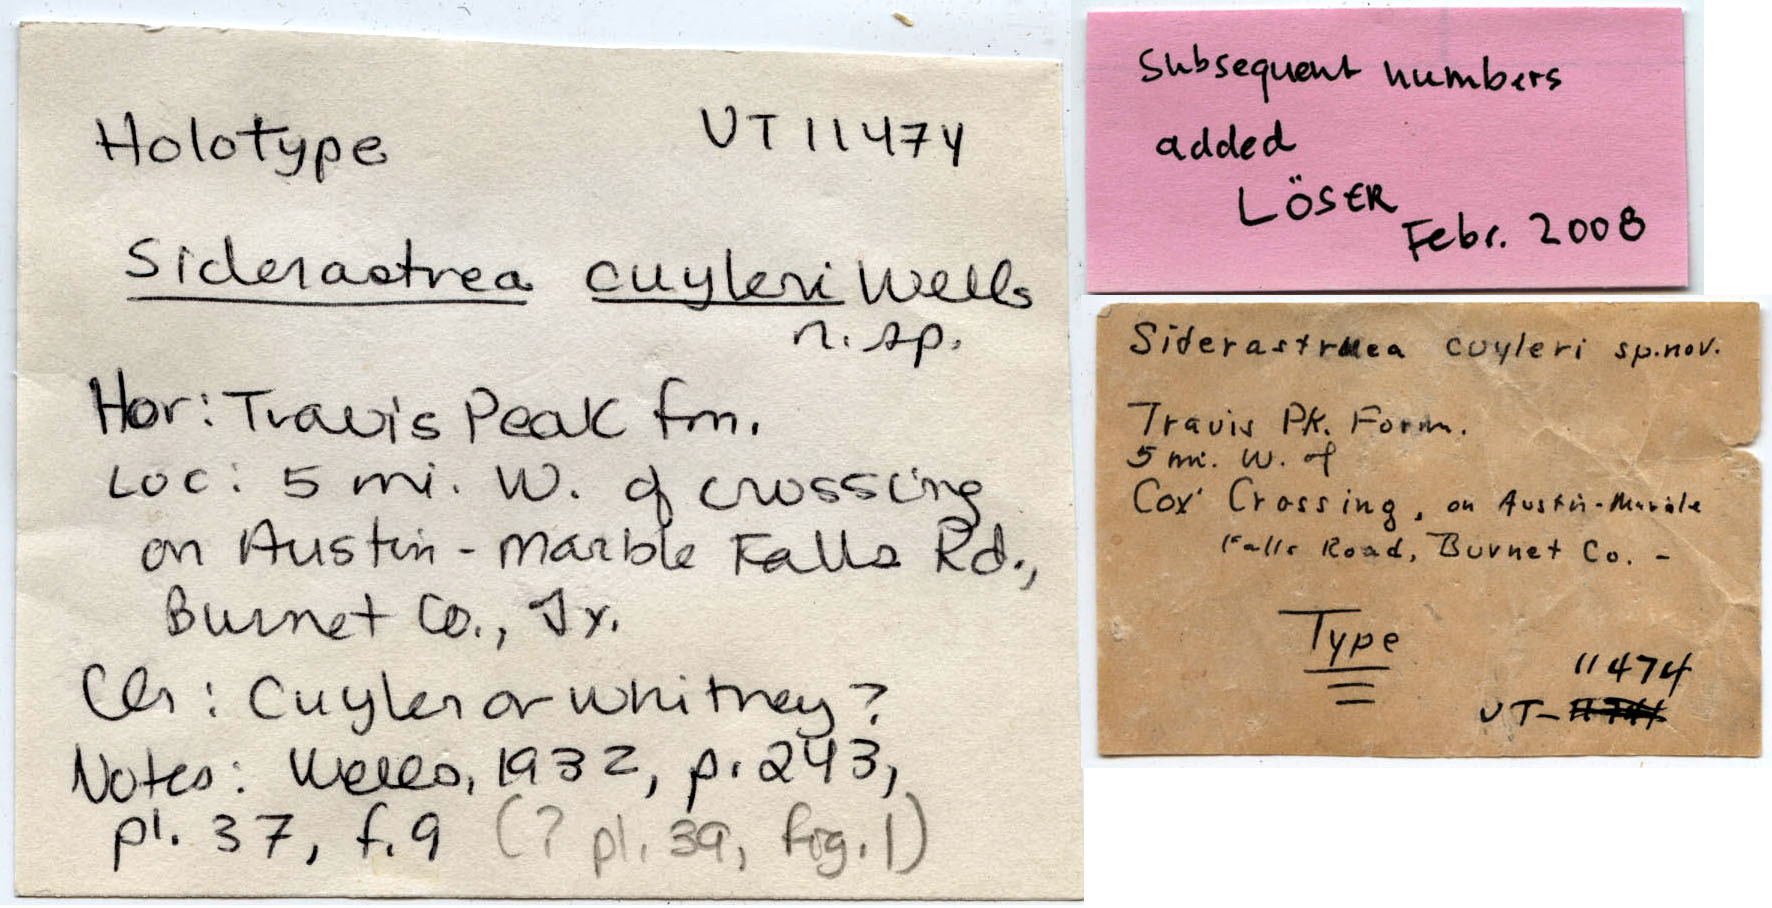 Holotype UT 11474
Siderastrea cuyleri Wells
n. sp.
Hor: Travis Peak fm.
Loc: 5 mi. W. of crossing
on Austin - Marble Falls Rd.,
Burnet Co., Tx.
Clr: Cuyler or Whitney?
Notes: Wells, 1932, p. 243,
pl. 37, f. 9 (? pl. 39, fig. 1)
Subsequent numbers
added
LÖSER
Febr. 2008
cuyleri sp. nov.
Travis Pk. Form.
5 mi. W. of
Cox' Crossing, on Austin-Marble
Falls Road, Burnet Co. -
Type
11474
UT-